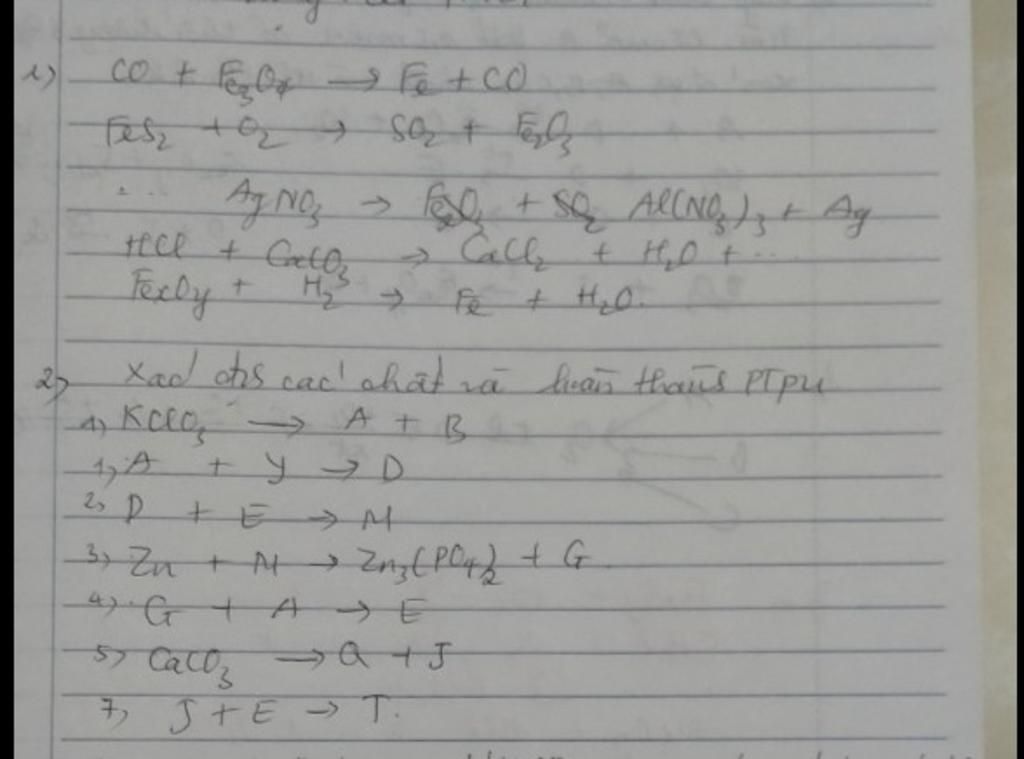 1) CO + Fe3O4 → Fe + CO
FeS2 + O2 → SO2 + Fe2O3
... AgNO3 → Al(NO3)3 + Ag
HCl + CaCO3 → CaCl2 + H2O + ...
FexOy + H2 → Fe + H2O.
2) Xác các chất và hoàn thành PTPU
1) KClO3 → A + B
1) A + Y → D
2) D + E → M
3) Zn + M → Zn3(PO4)2 + G
4) G + A → E
5) CaCO3 → Q + J
7) J + E → T.